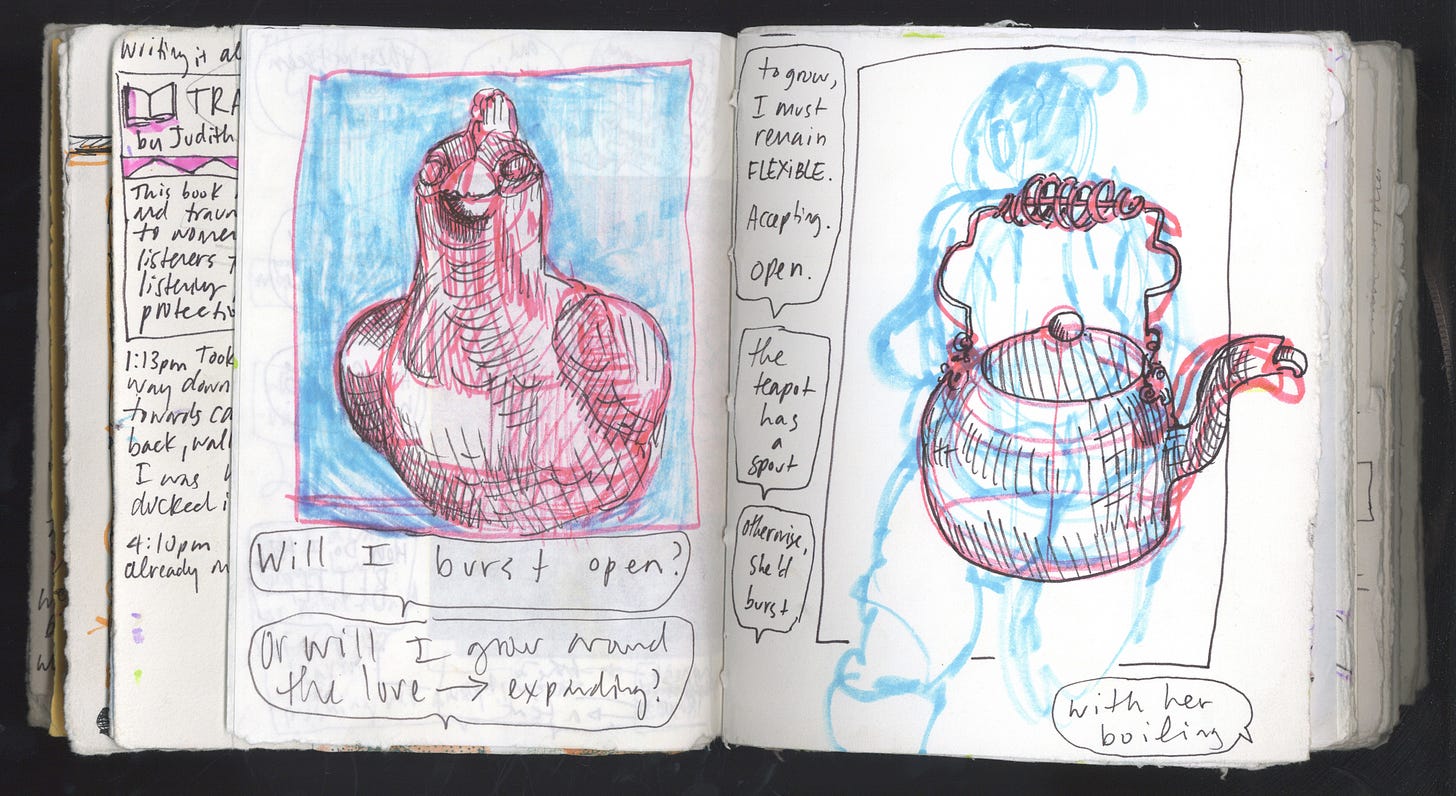 Writing it al
TRA
by Judith
This book
and traum
to women
listeners
listening
protectiv
1:13pm Took
way down
towards ca
back, wal
I was
ducked i
4:10pm
already
Will I burst open?
Or will I grow around
the love → expanding?
to grow,
I must
remain
FLEXIBLE.
Accepting.
open.
the
teapot
has
a
spout
otherwise,
she'd
burst
with her
boiling